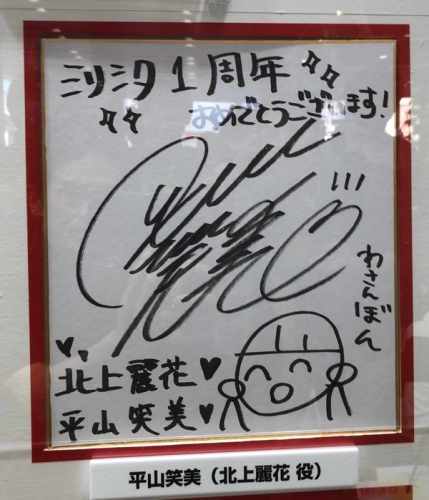 ミリシタ1周年
おめでとうございます!
わさんぼん
北上麗花
平山笑美
平山笑美（北上麗花 役）